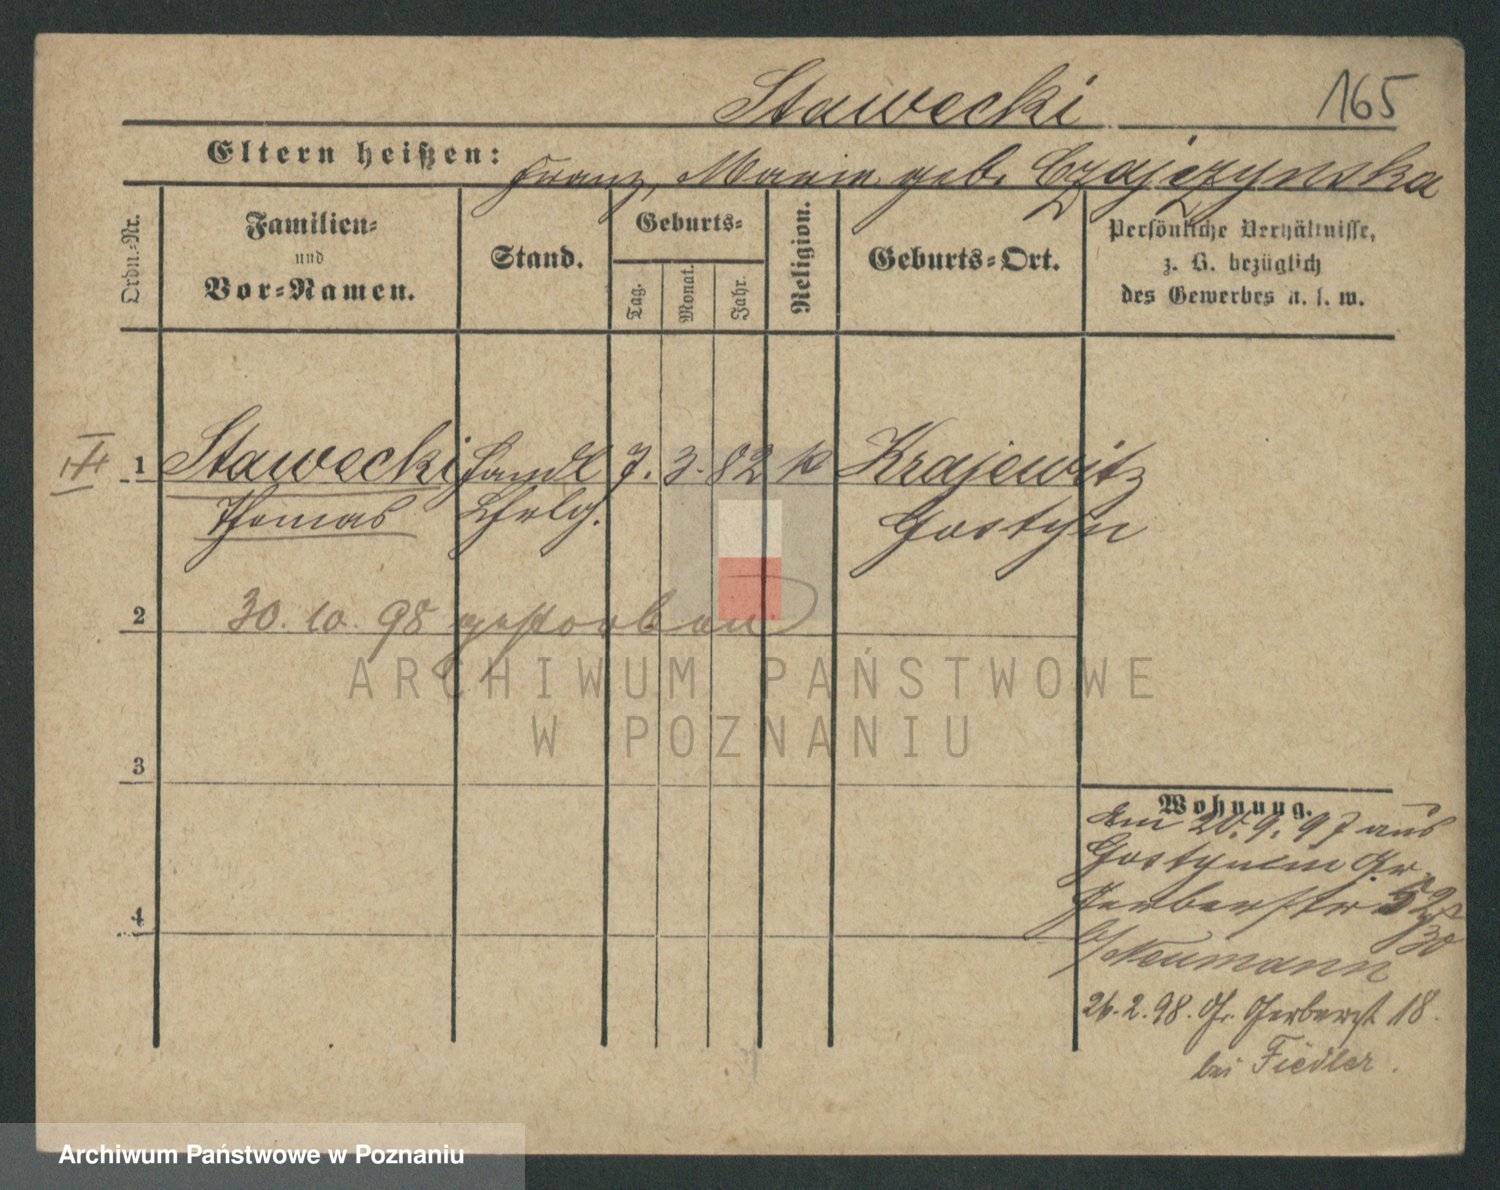 Stawecki
165
Eltern heißen: Franz, Marie geb. Czajczynska
Ordn.-Nr.
Familien-
und
Vor-Namen.
Stand.
Geburts-
Tag.
Monat.
Jahr.
Religion.
Geburts-Ort.
Persönliche Verhältnisse,
z. B. bezüglich
des Gewerbes u. s. w.
1 Stawecki Handl 7. 3. 82 k Krajewitz
Thomas Lehrlg. Gostyn
2 30. 10. 98 gestorben
ARCHIWUM PAŃSTWOWE
W POZNANIU
3
Wohnung.
am 20. 9. 97 aus
Gostyn Gr.
Gerberstr
30
b/ Neumann
4
26. 2. 98. Gr. Gerberst 18.
bei Fiedler.
Archiwum Państwowe w Poznaniu